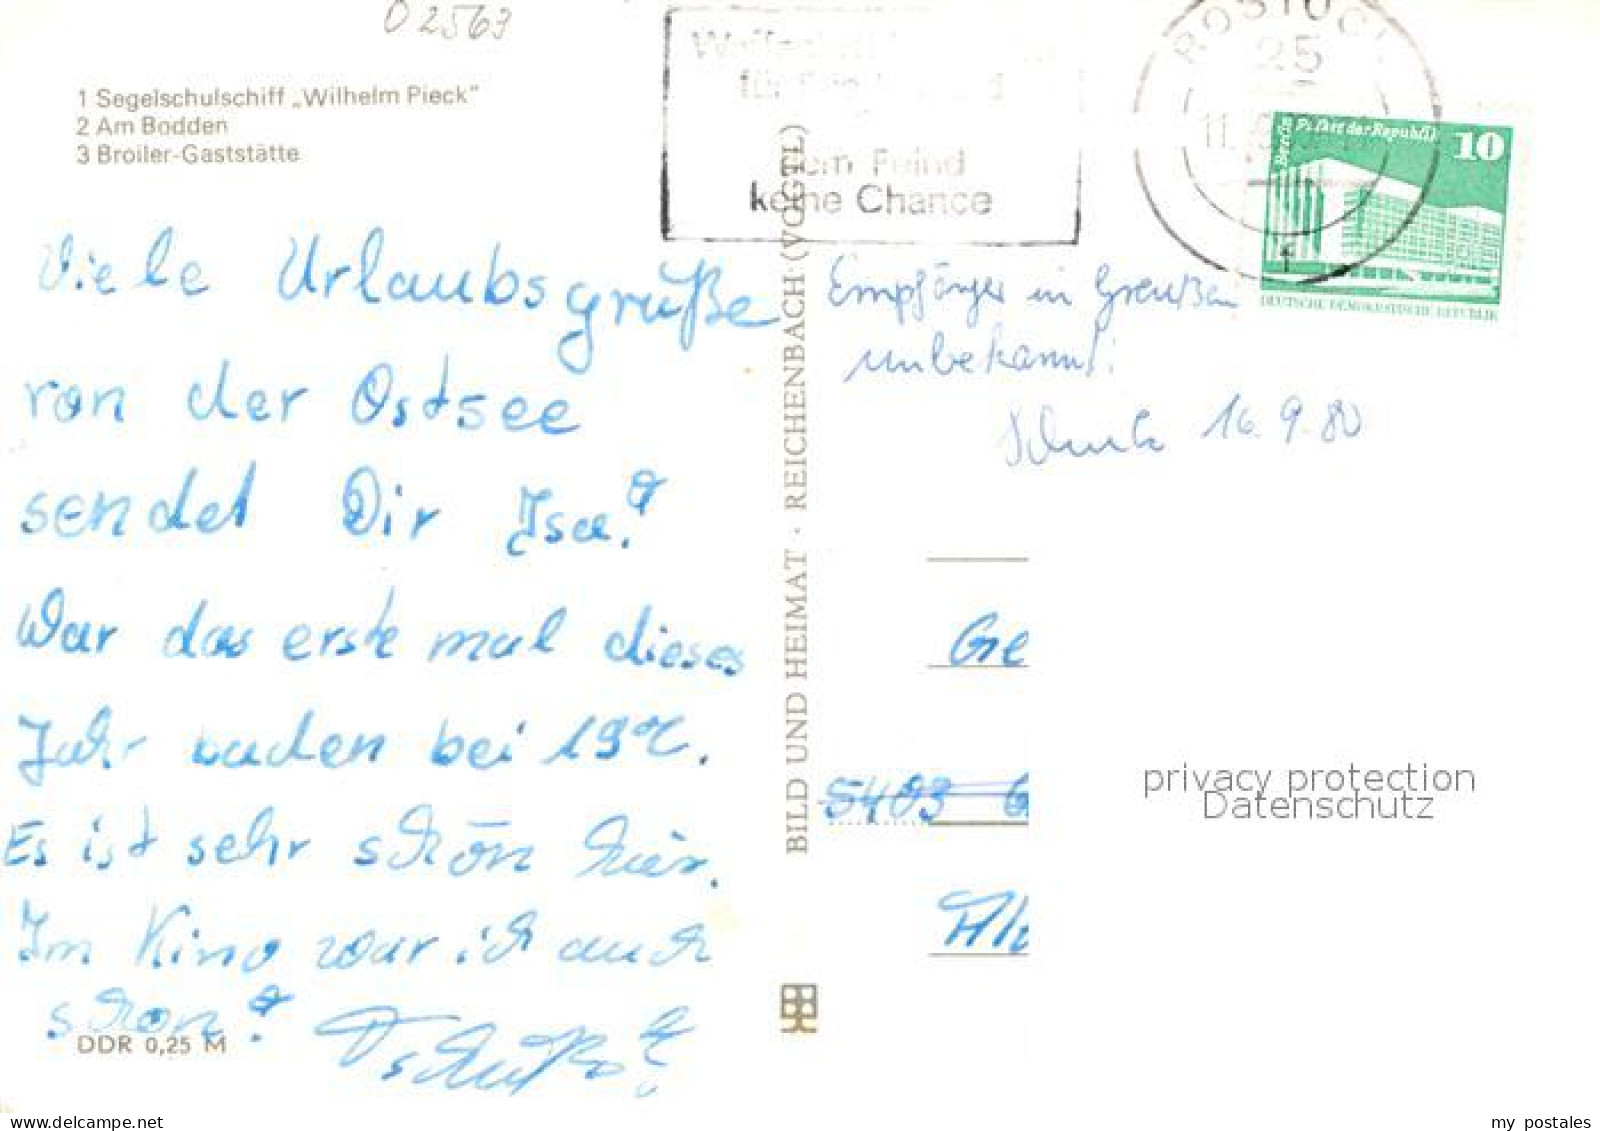 O 2563
1 Segelschulschiff „Wilhelm Pieck“
2 Am Bodden
3 Broiler-Gaststätte
Viele Urlaubsgrüße
von der Ostsee
sendet Dir
War das erste mal dieses
Jahr baden bei 19°C.
Es ist sehr schön hier.
Im Kino war ich auch
schon!
Tschüß!
DDR 0,25 M
BILD UND HEIMAT · REICHENBACH (VOGTL)
Feind
keine Chance
ROSTOCK
25
11
f
Berlin Palast der Republik 10
DEUTSCHE DEMOKRATISCHE REPUBLIK
Empfänger in Greußen
unbekannt!
16.9.80
Ge
5403 G
privacy protection
Datenschutz
my postales